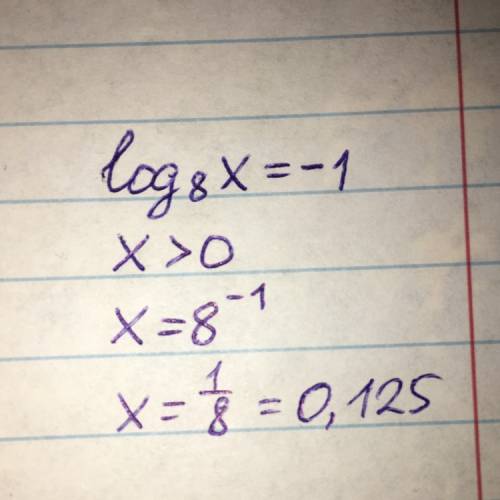 log₈x=-1
x>0
x=8⁻¹
x=1/8=0,125